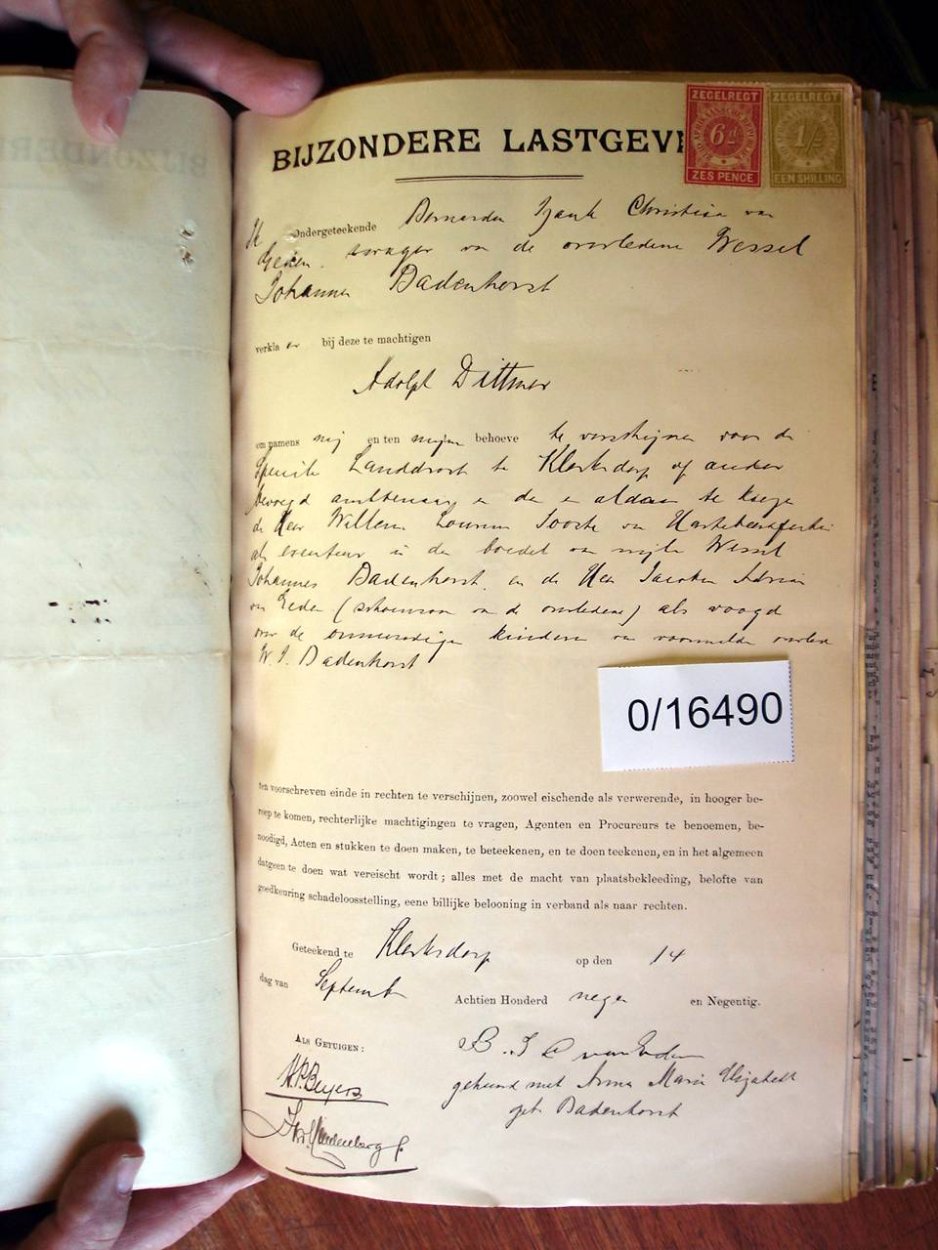 BIJZONDERE LASTGEVI
ZEGELREGT
6d
ZES PENCE
ZEGELREGT
1/-
EEN SHILLING
Ik Ondergeteekende Izaak Christiaan van
Eeden zwager van de overledene Wessel
Johannes Badenhorst
verkla bij deze te machtigen
Adolph Dittmar
om namens mij en ten mijnen behoeve te verschijnen voor de
Landdrost te Klerksdorp of ander
bevoegd ambtenaar en de aldaar te
de Heer Willem Louwrens Jooste van Hartebeestfontein
als executeur in den boedel van wijlen Wessel
Johannes Badenhorst en de Heer Jacobus Adriaan
van Eeden (schoonzoon van de overledene) als voogd
over de onmondige kinderen van voormelde
W. J. Badenhorst
0/16490
ten voorschreven einde in rechten te verschijnen, zoowel eischende als verwerende, in hooger be-
roep te komen, rechterlijke machtigingen te vragen, Agenten en Procureurs te benoemen, be-
noodigd, Acten en stukken te doen maken, te beteekenen, en te doen teekenen, en in het algemeen
datgeen te doen wat vereischt wordt; alles met de macht van plaatsbekleeding, belofte van
goedkeuring schadeloosstelling, eene billijke belooning in verband als naar rechten.
Geteekend te Klerksdorp op den 14
dag van September Achtien Honderd negen en Negentig.
ALS GETUIGEN: B. I C van Eeden
H.P. Beyers gehuwd met Anna Maria Elizabeth
geb. Badenhorst